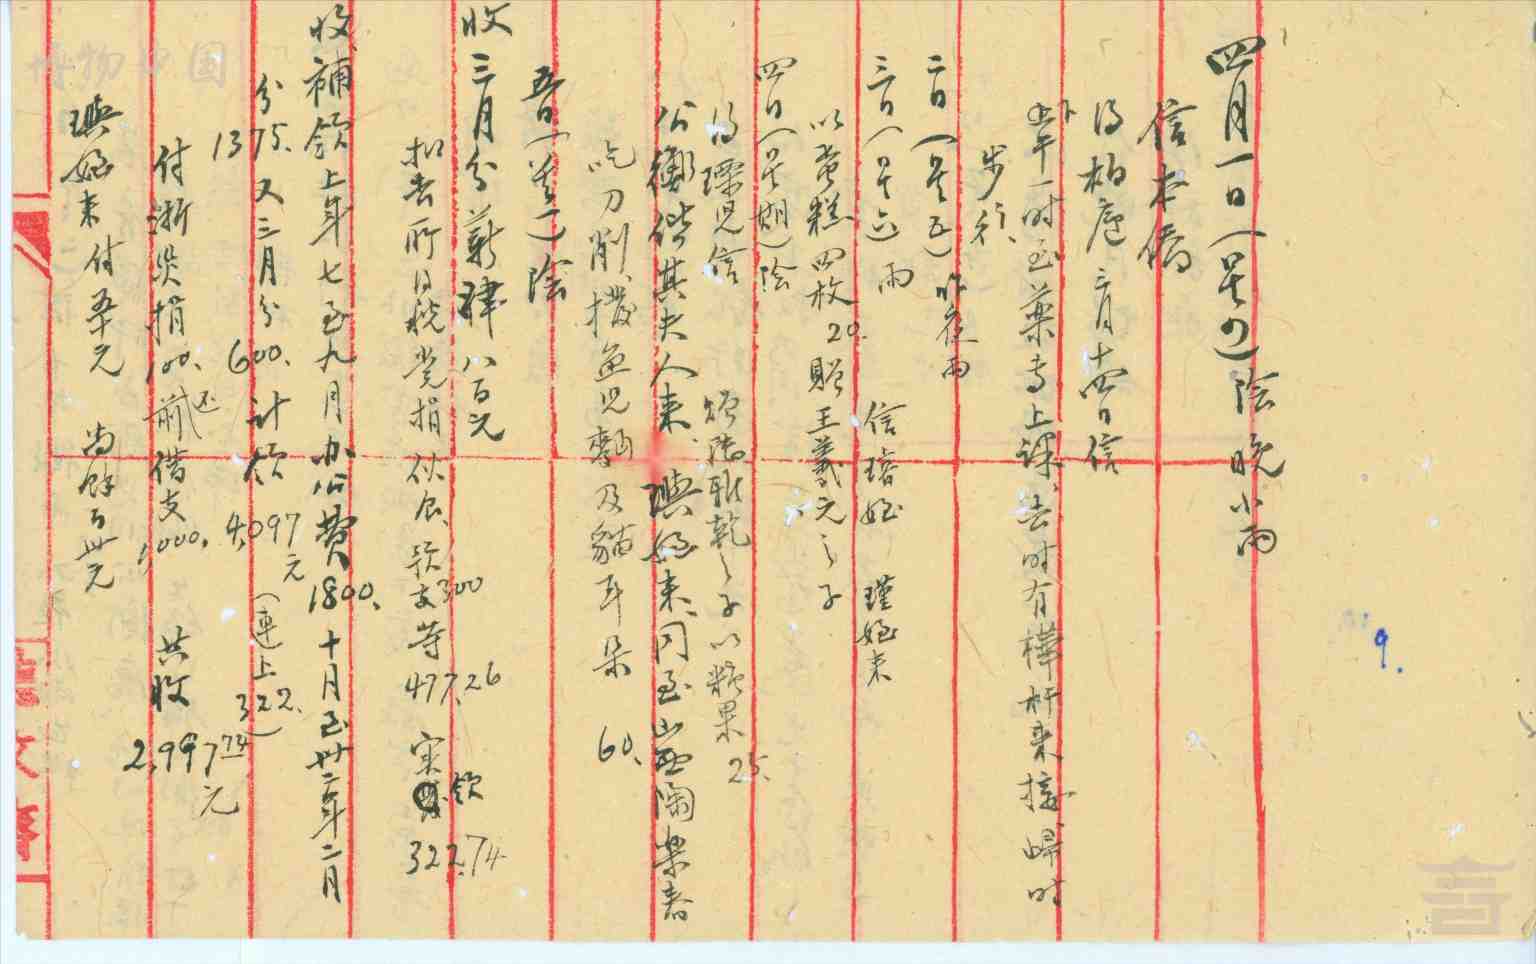 四月一日（星四）陰 晚小雨
信本僑
得柏庭三月十四日信
下午一时至藥專上課，去时有樺杆來接，歸时
步行，
二日（星五）昨夜雨
三日（星六）雨 信璿姪 瑾姪來
以蛋糕四枚20.贈王羲元之子
四日（星期）陰 贈陸雅乾之子以糖果25.
得瑮児信
公衡偕其夫人來，璵姪來，同至山西陶樂春
吃刀削，撥魚児麵及貓耳朵 60.
五日（星一）陰
收三月分薪津八百元
扣去所得税党捐伙食，預支300等477.26 実領322.74
收補領上年七至九月办公費1800. 十月至卅二年二月
分1375.又三月分600.计領4,097元（連上322.）
付浙災捐100.还前借支1,000. 共收2,997.74元
璵姪来付叁千元 尚餘百卅元
9.
博物中国